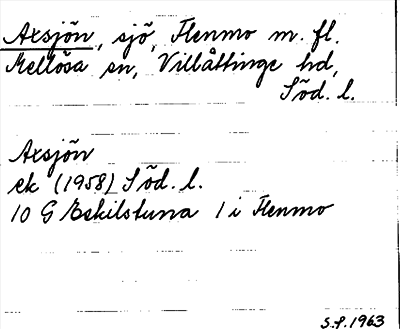 Axsjön, sjö, Flenmo m. fl.
Mellösa sn, Villåttinge hd,
Söd. l.
Axsjön
ek (1958) Söd. l.
10 G Eskilstuna 1 i Flenmo
S.P. 1963